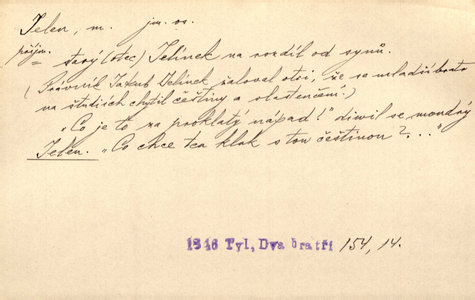 Jelen, m. jm. os.
příjm.
= starý (otec) Jelínek na rozdíl od synů.
(Právník Jakub Jelínek žaloval otci, že se mladší bratr
na studiích chytil češtiny a vlastenčení.)
„Co je to za proklatý nápad!" divil se moudrý
Jelen. „Co chce ten kluk s tou češtinou?..."
1846 Tyl, Dva bratři 154, 14.